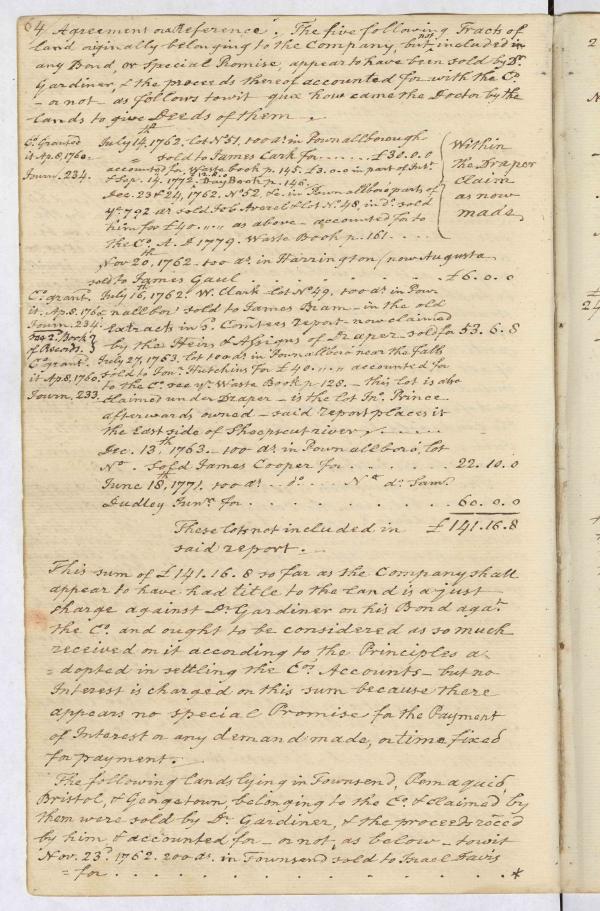 64 Agreement or Reference. The five following Tracts of
land originally belonging to the Company, but not included in
any Bond, or Special Promise, appear to have been sold by Dr.
Gardiner, & the proceeds thereof accounted for with the Co.
- or not - as follows towit quæ how came the Doctor by the
lands to give Deeds of them.
Co. Granted
it Ap. 8, 1760.
Journ. 234.
July 14th, 1762, lot No. 51, 100 as. in Pownallborough
= sold to James Cark for . . . . . £30.0.0
accounted for, Waste book p. 145. £3.0.0 in part of Intt.
& Sep. 14. 1772 Day Book p. 146.
Dec. 23 & 24, 1762. No. 52 &c. in Pownallboro' parts of
ys. 792 as. sold Job Averel & lot No. 48, in do. sold
him for £40.,,.,, as above - accounted for to
the Co. A.D. 1779. Waste Book p. 161. . .
Within
the Draper
claim
as now
made
Nov. 20th, 1762. 100 as. in Harrington (now Augusta
sold to James Gaul . . . . . . . £6.0.0
Co. grant.
it, Ap. 8, 1760
Journ. 234.
see 2. Book
of Records.
July 16th, 1762. W. Clark - lot No. 49. 100 as. in Pow
nallbor' sold to James Bram - in the old
Extracts in 3d. Comtees report - now claimed
by the Heirs & Assigns of Draper - sold for 53.6.8
Co. grant.
it Ap. 8, 1760.
Journ. 233.
July 27, 1763. lot 100 as. in Pownallboro' near the falls
sold to Jona. Hutchins for £40.,,.,, accounted for
to the Co. see ye. Waste Book p. 128. - this lot is also
claimed under Draper - is the lot Jno. Prince
afterwards owned - said report places it
the East side of Sheepscut river . . . . .
Dec. 13th, 1763. - 100 as. in Pownallboro', lot
No. . sold James Cooper for . . . . . . 22.10.0
June 18th, 1771. 100 as. . . do. . . . No. do. Saml.
Dudley Junr. for . . . . . . . . . 60.0.0
These lots not included in £141.16.8
said report.
This sum of £141.16.8 so far as the Company shall
appear to have had title to the land is a just
charge against Dr. Gardiner on his Bond agat.
the Co. and ought to be considered as so much
received on it according to the Principles a-
=dopted in settling the Cos. Accounts - but no
Interest is charged on this sum because there
appears no special Promise for the Payment
of Interest or any demand made, or time fixed
for payment.
The following lands lying in Townsend, Pemaquid,
Bristol, & Georgetown, belonging to the Co. & claimed by
them were sold by Dr. Gardiner, & the proceeds recd.
by him & accounted for - or not, as below - towit
Nov. 23d. 1762. 200 as. in Townsend sold to Israel Davis
= for . . . . . . . . . . . . *